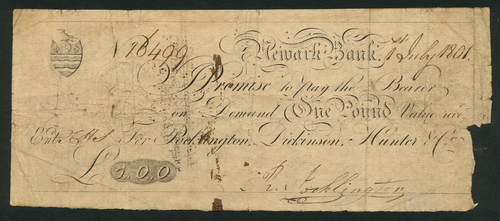 No 18499 Newark Bank, 1st July 1801.
I Promise to pay the Bearer
on Demand One Pound Value rec'd
Entd For Pocklington, Dickinson, Hunter & Co.
£1.0.0
R. Pocklington